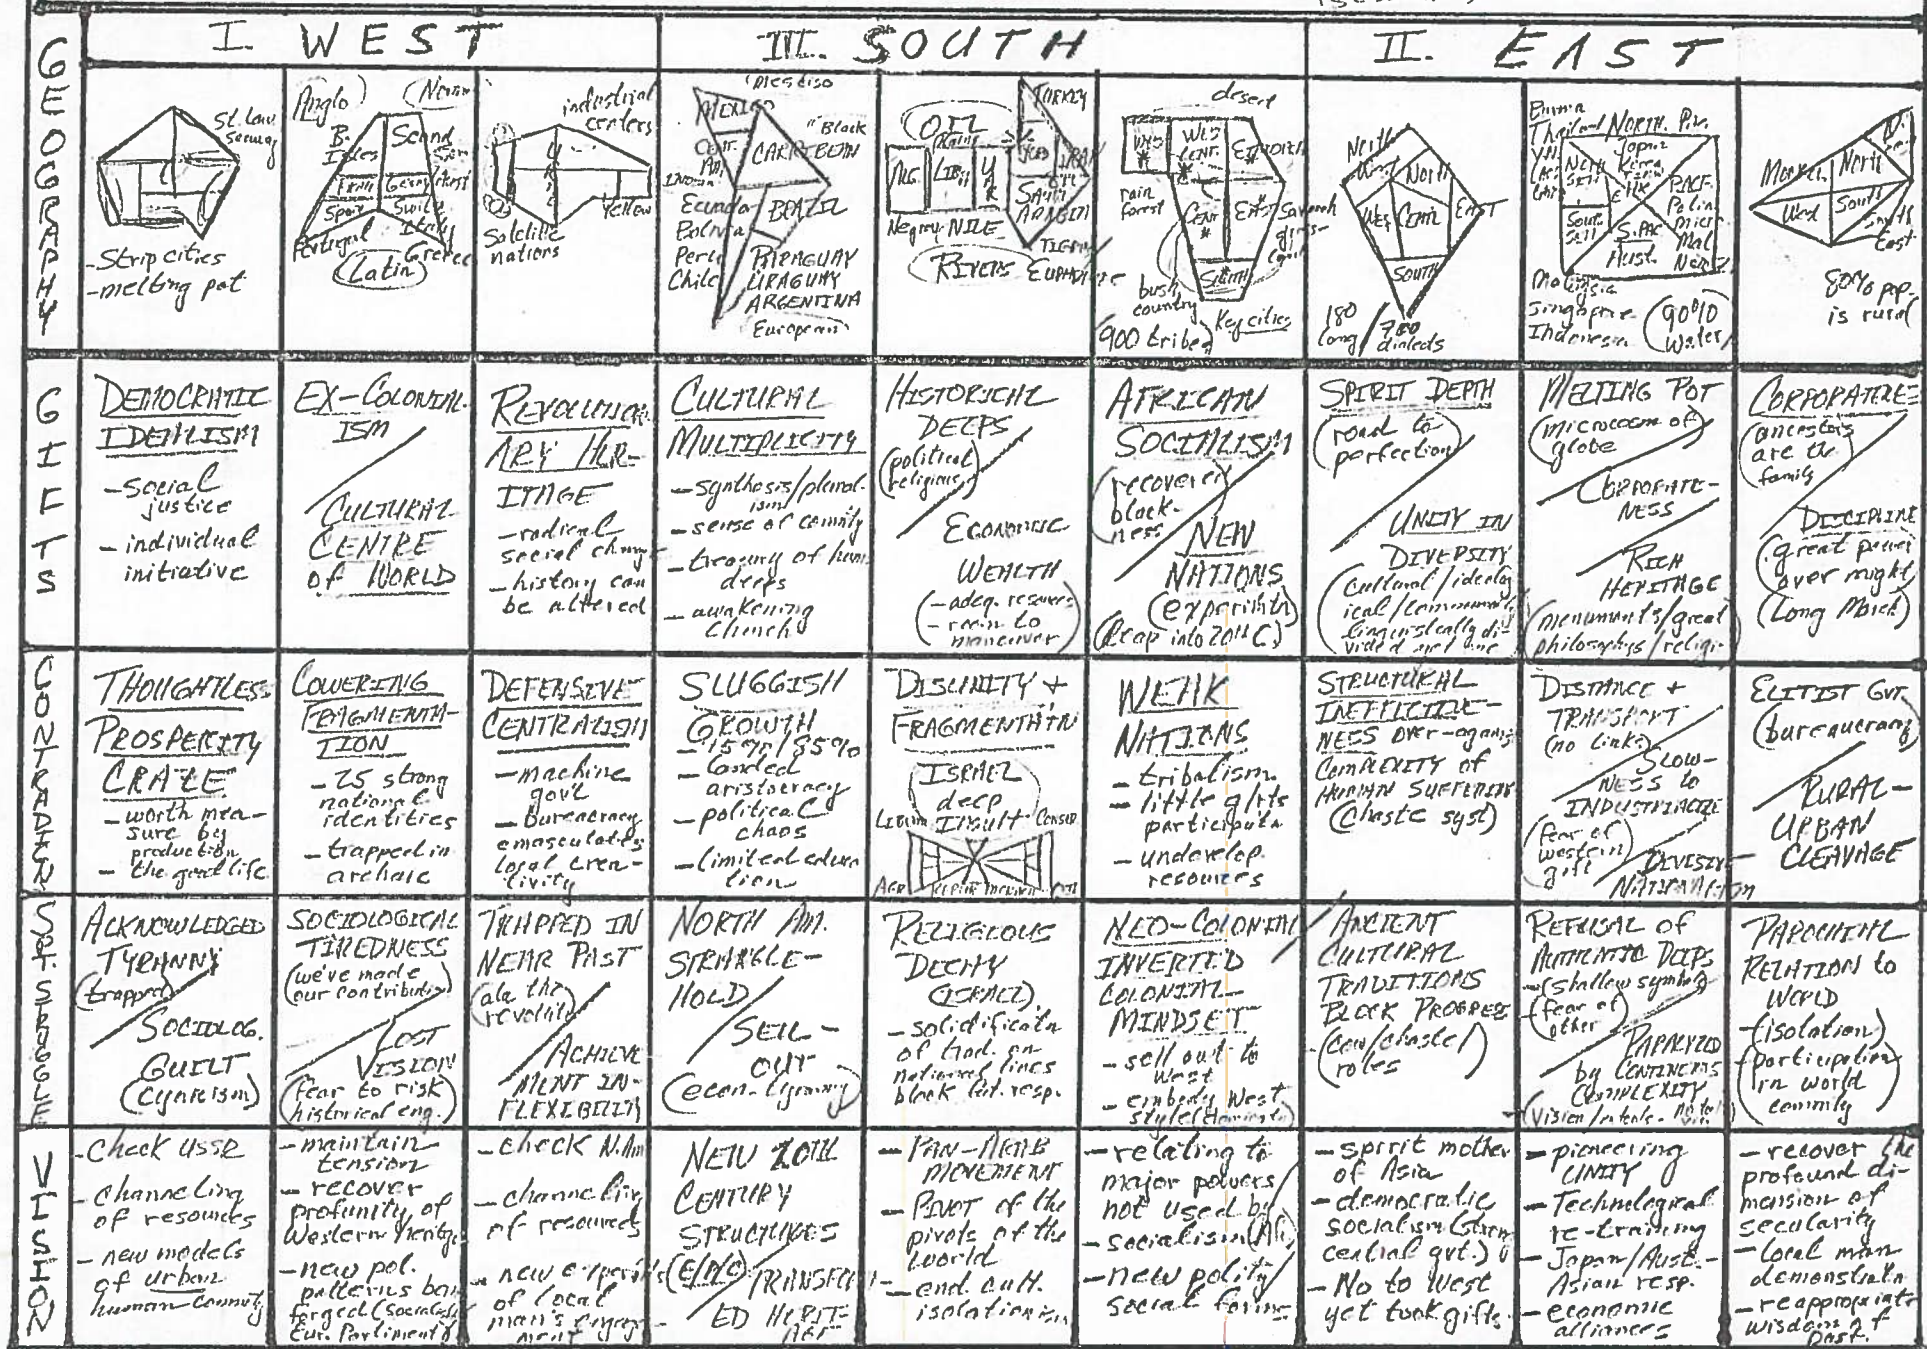 I. WEST
III. SOUTH
II. EAST
GEOGRAPHY
St. Law.
Seaway
- Strip cities
- melting pot
Anglo
B.
Isles
Scand
Spain
Portugal
Italy
Greece
Latin
industrial
centers
URAL
Yellow
Satellite
nations
MEXICO
"Black
CARRIBEAN
Bolivia
Peru
Chile
BRAZIL
URAGUAY
ARGENTINA
European
OIL
TURKEY
IRAN
ALG.
SAUDI
ARABIA
Negroy NILE
RIVERS
desert
WES
CENT.
ETHOPIA
rain
forest
CENT
EAST
Savanah
SOUTH
bush
country
900 tribes
Key cities
North
West
North
West
CENTL
EAST
SOUTH
180
long/
700
dialects
Burma
Thailand NORTH. Piv.
Japan
Korea
S. PAC
Aust.
Malaysia
Singapore
Indonesia
90%
water
North
West
South
South
East
80% pop.
is rural
GIFTS
DEMOCRATIC
IDEALISM
- social
justice
- individual
initiative
EX-COLONIAL-
ISM
CULTURAL
CENTRE
OF WORLD
REVOLUTION-
ARY HER-
ITAGE
- radical
social change
- history can
be altered
CULTURAL
MULTIPLICITY
- synthesis/plural-
ism
- sense of comnity
- treasury of hum.
deeps
- awakening
Church
HISTORICAL
DEEPS
(political
religious)
ECONOMIC
WEALTH
(- adeq. resources
- room to
maneuver)
AFRICAN
SOCIALISM
(recovered
black-
ness
NEW
NATIONS
(experimts)
(leap into 20th C)
SPIRIT DEPTH
(road to
perfection)
UNITY IN
DIVERSITY
(cultural/ideolog
ical/communal
linguistically di-
MELTING POT
(microcosm of
globe
CORPORATE-
NESS
RICH
HERITAGE
(monuments/great
philosophys/religi-
CORPORATENE=
(ancestors
are the
family
DISCIPLINE
(great power
over might)
(Long March)
CONTRADICTN
THOUGHTLESS
PROSPERITY
CRAZE
- worth mea-
sure by
production
- the good life
COWERING
FRAGMENTA-
TION
- 25 strong
national
identities
- trapped in
archaic
DEFENSIVE
CENTRALISM
- machine
gov't
- Bureacracy
emasculates
local crea-
tivity
SLUGGISH
GROWTH
- 15%/85%
- landed
aristocracy
- political
chaos
- limited educa
tion
DISUNITY +
FRAGMENTATN
ISRAEL
deep
INSULT
WEAK
NATIONS
- tribalism
- little g/rts
participatn
- undevelop.
resources
STRUCTURAL
INEFFECTIVE-
NESS over-against
COMPLEXITY of
HUMAN SUFFERING
(chaste syst)
DISTANCE +
TRANSPORT
(no links)
SLOW-
NESS to
INDUSTRIALIZE
(fear of
western
gift
DIVISIVE
ELITIST GVT.
(bureaucracy)
RURAL-
URBAN
CLEAVAGE
SPT. STRUGGLE
ACKNOWLEDGED
TYRANNY
(trapped)
SOCIOLOG.
GUILT
(cynicism)
SOCIOLOGICAL
TIREDNESS
(we've made
our contribution)
LOST
VISION
(fear to risk
historical eng.)
TRAPPED IN
NEAR PAST
(ala the
revolutn)
ACHIEVE
MENT IN-
FLEXIBILITY
NORTH AM.
STRANGLE-
HOLD
SELL-
OUT
(econ. tyranny)
RELIGIOUS
DECAY
(ISRAEL)
- solidificatn
of trad. on
national lines
block fut. resp.
NEO-COLONIAL
INVERTED
COLONIAL
MINDSET
- sell out to
West
- embody West
ANCIENT
CULTURAL
TRADITIONS
BLOCK PROGRESS
(cow/chaste/
roles
REFUSAL of
AUTHENTIC DEEPS
- (shallow symbols)
(fear of
other
PARALYZED
by CONTINENTS
COMPLEXITY
PAROCHIAL
RELATION to
WORLD
- (isolation)
- participation
in world
commity
VISION
- check USSR
- channeling
of resources
- new models
of urban
human commty
- maintain
tension
- recover
profunity of
Western heritge
- new pol.
patterns being
forged (socialist
Eur. Parliment)
- check N.Am
- channeling
of resources
- new experim
of local
man's engage-
ment
NEW 20th
CENTURY
STRUCTURES
(E/P/C)
TRANSFORM
ED HERIT-
AGE
- PAN-ARAB
MOVEMENT
- PIVOT of the
pivots of the
world
- end cult.
isolationism
- relating to
major powers
not used by
- socialism (Af.)
- new polity/
social forms
- spirit mother
of Asia
- democratic
socialism (strong
central gvt.)
- No to West
yet took gifts
- pioneering
UNITY
- Technological
re-training
- Japan/Aust.-
Asian resp.
- economic
alliances
- recover the
profound di-
mension of
secularity
- local man
demonstratn
- reappropriate
wisdom of
past.